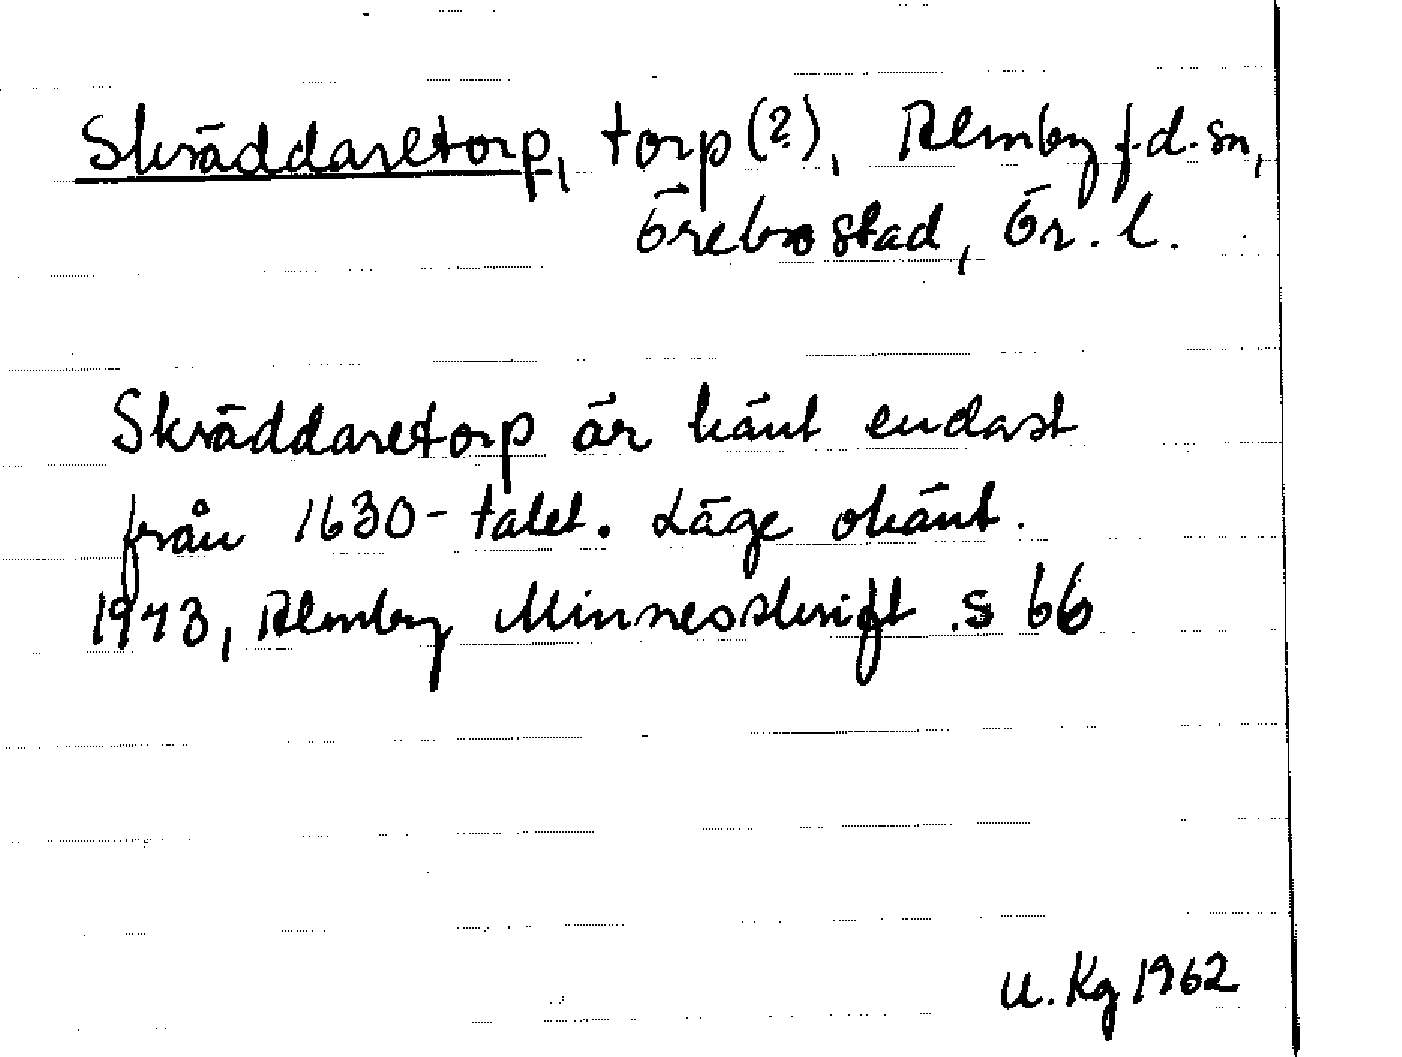 Skräddaretorp, torp(?), Almby f.d. sn,
Örebro stad, Ör. l.
Skräddaretorp är känt endast
från 1630-talet. Läge okänt.
1943, Almby Minnesskrift s 66
U. Kg 1962